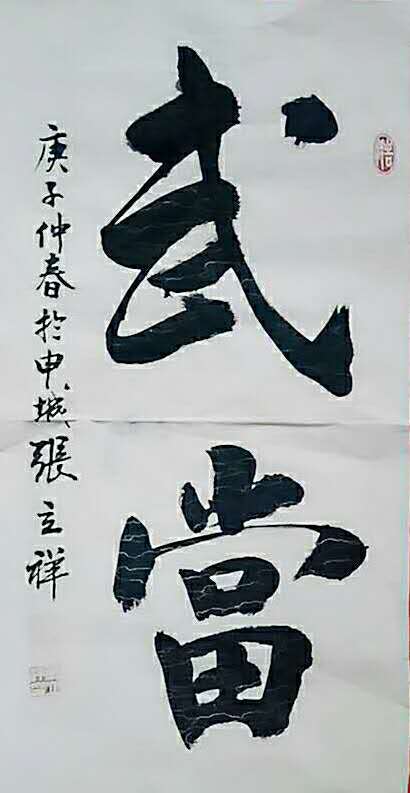 武當
庚子仲春於申城張立祥